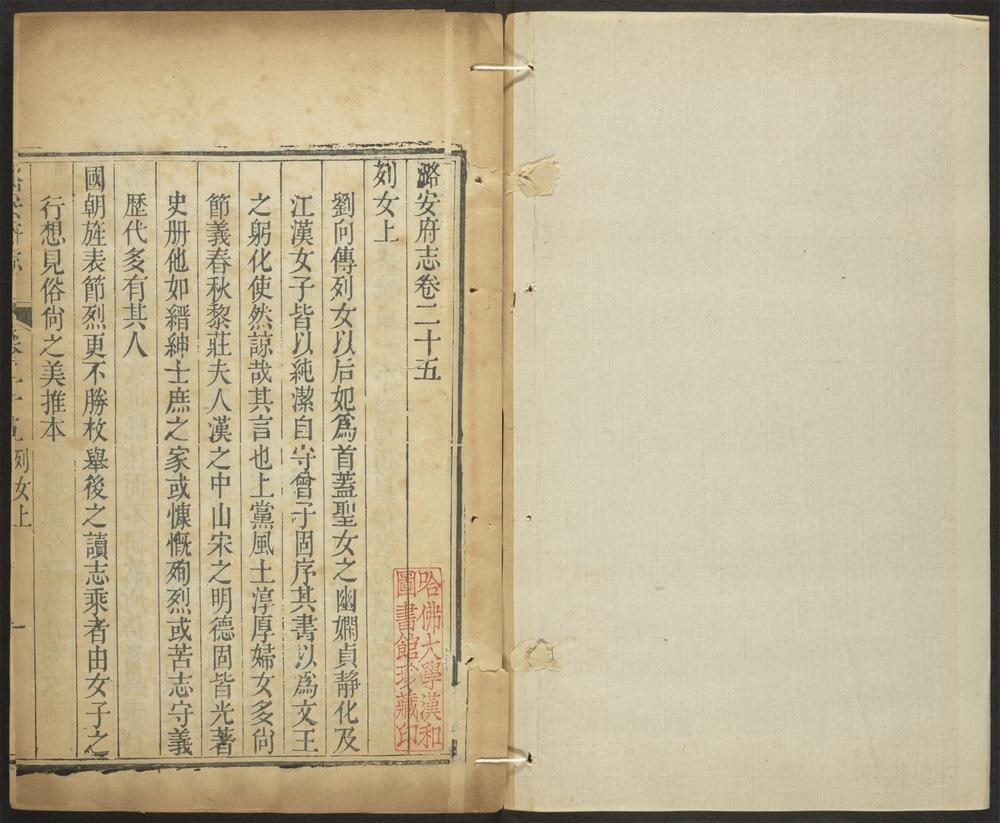 潞安府志卷二十五
列女上
劉向傳列女以后妃爲首蓋聖女之幽嫻貞靜化及
江漢女子皆以純潔自守曾子固序其書以爲文王
之躬化使然諒哉其言也上黨風土淳厚婦女多尙
節義春秋黎莊夫人漢之中山宋之明德固皆光著
史册他如縉紳士庶之家或慷慨殉烈或苦志守義
歷代多有其人
國朝旌表節烈更不勝枚舉後之讀志乘者由女子之
行想見俗尙之美推本
列女上
一
哈佛大學漢和
圖書館珍藏印